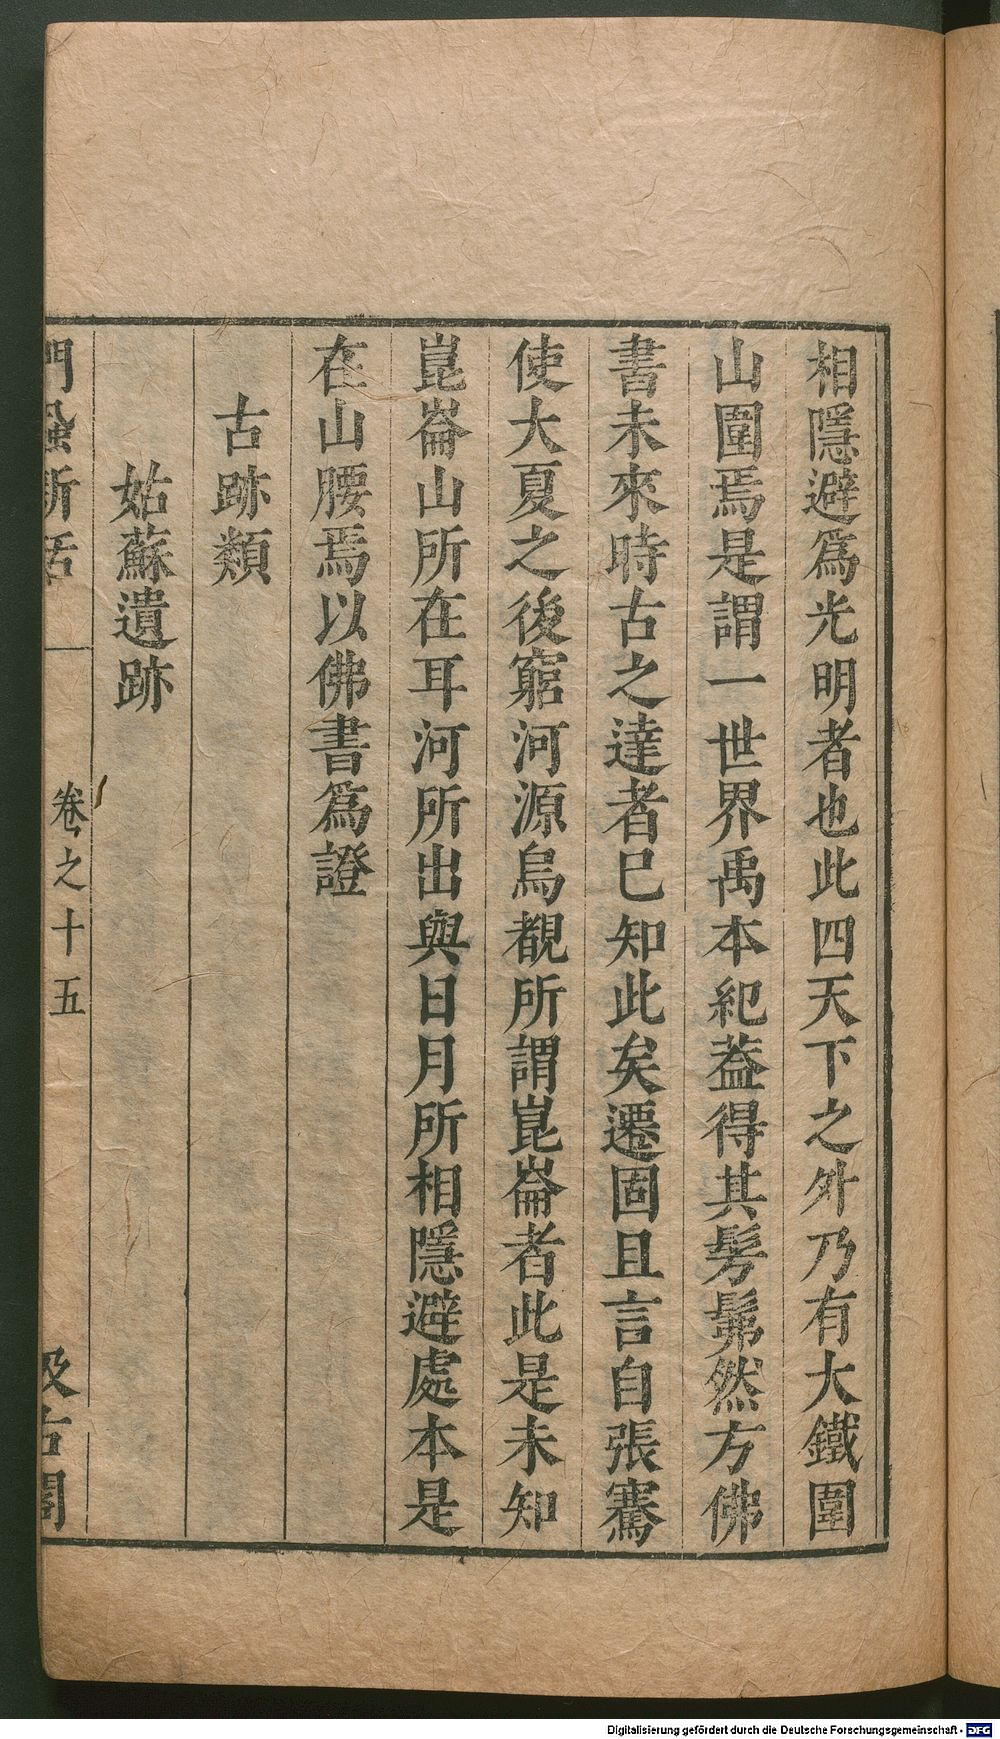 相隱避爲光明者也此四天下之外乃有大鐵圍
山圍焉是謂一世界禹本紀葢得其髣髴然方佛
書未來時古之達者巳知此矣遷固且言自張騫
使大夏之後窮河源烏覩所謂崑崙者此是未知
崑崙山所在耳河所出與日月所相隱避處本是
在山腰焉以佛書爲證
古跡類
姑蘇遺跡
捫蝨新話
卷之十五
汲古閣
Digitalisierung gefördert durch die Deutsche Forschungsgemeinschaft - DFG